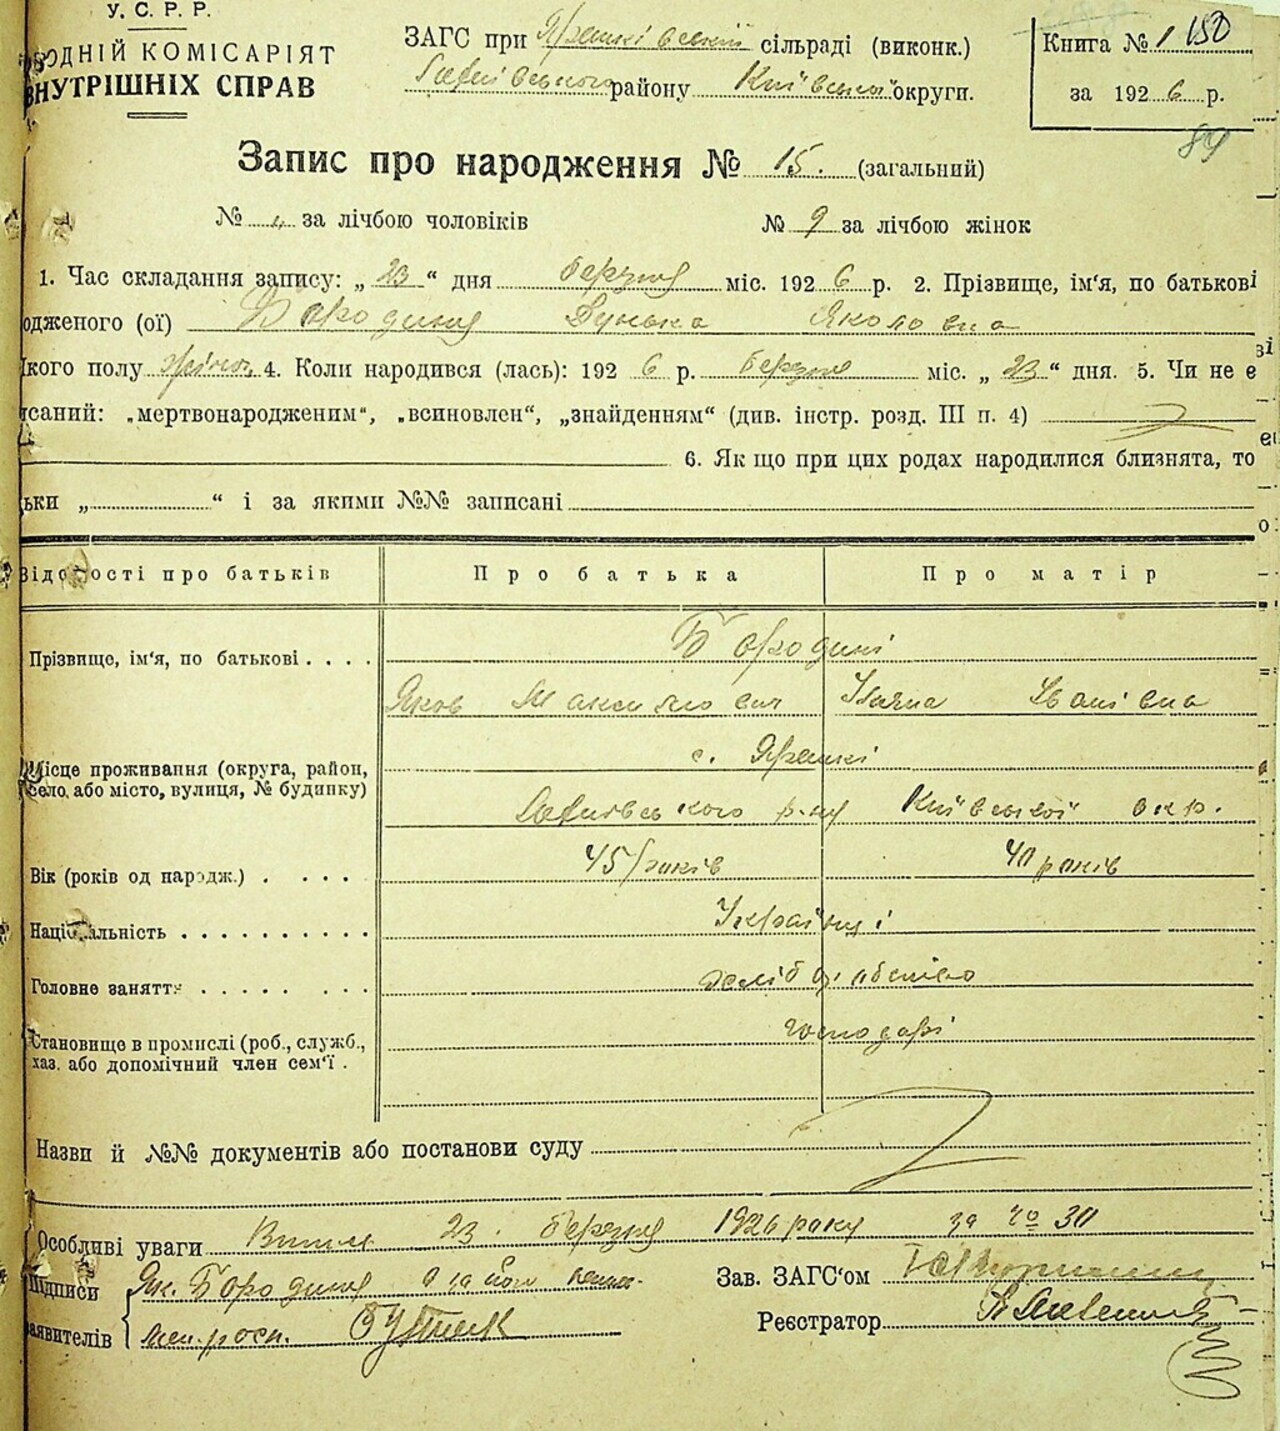 У. С. Р. Р.
ОДНІЙ КОМІСАРІЯТ
ВНУТРІШНІХ СПРАВ
ЗАГС при сільраді (виконк.)
району Київської округи.
Книга № 1 150
за 1926 р.
89
Запис про народження № 15. (загальний)
№ „ за лічбою чоловіків № 9 за лічбою жінок
1. Час складання запису: „ 23 “ дня березня міс. 1926 р. 2. Прізвище, ім‘я, по батькові
одженого (ої) Бородиня Дунька Якововна
кого полу жіноч. 4. Коли народився (лась): 1926 р. березня міс. „ 23 “ дня. 5. Чи не є
саний: „мертвонародженим“, „всиновлен“, „знайденням“ (див. інстр. розд. III п. 4)
6. Як що при цих родах народилися близнята, то
ьки „ “ і за якими №№ записані
Відомості про батьків Про батька Про матір
Прізвище, ім‘я, по батькові . . . . Бородині
Яков Максимович Іванівна
Місце проживання (округа, район, село, або місто, вулиця, № будинку) с. Ярешкі
р-ну Київської окр.
Вік (років од народж.) . . . . 45 років 40 років
Національність . . . . . . . . . . Українці
Головне заняття . . . . . . . . . хліборобство
Становище в промислі (роб., служб., хаз. або допомічний член сем‘ї . господарі
Назви й №№ документів або постанови суду
Особливі уваги 23. березня 1926 року за № 30
Підписи Як. Бородиня
Зав. ЗАГС‘ом
аявителів
Реєстратор